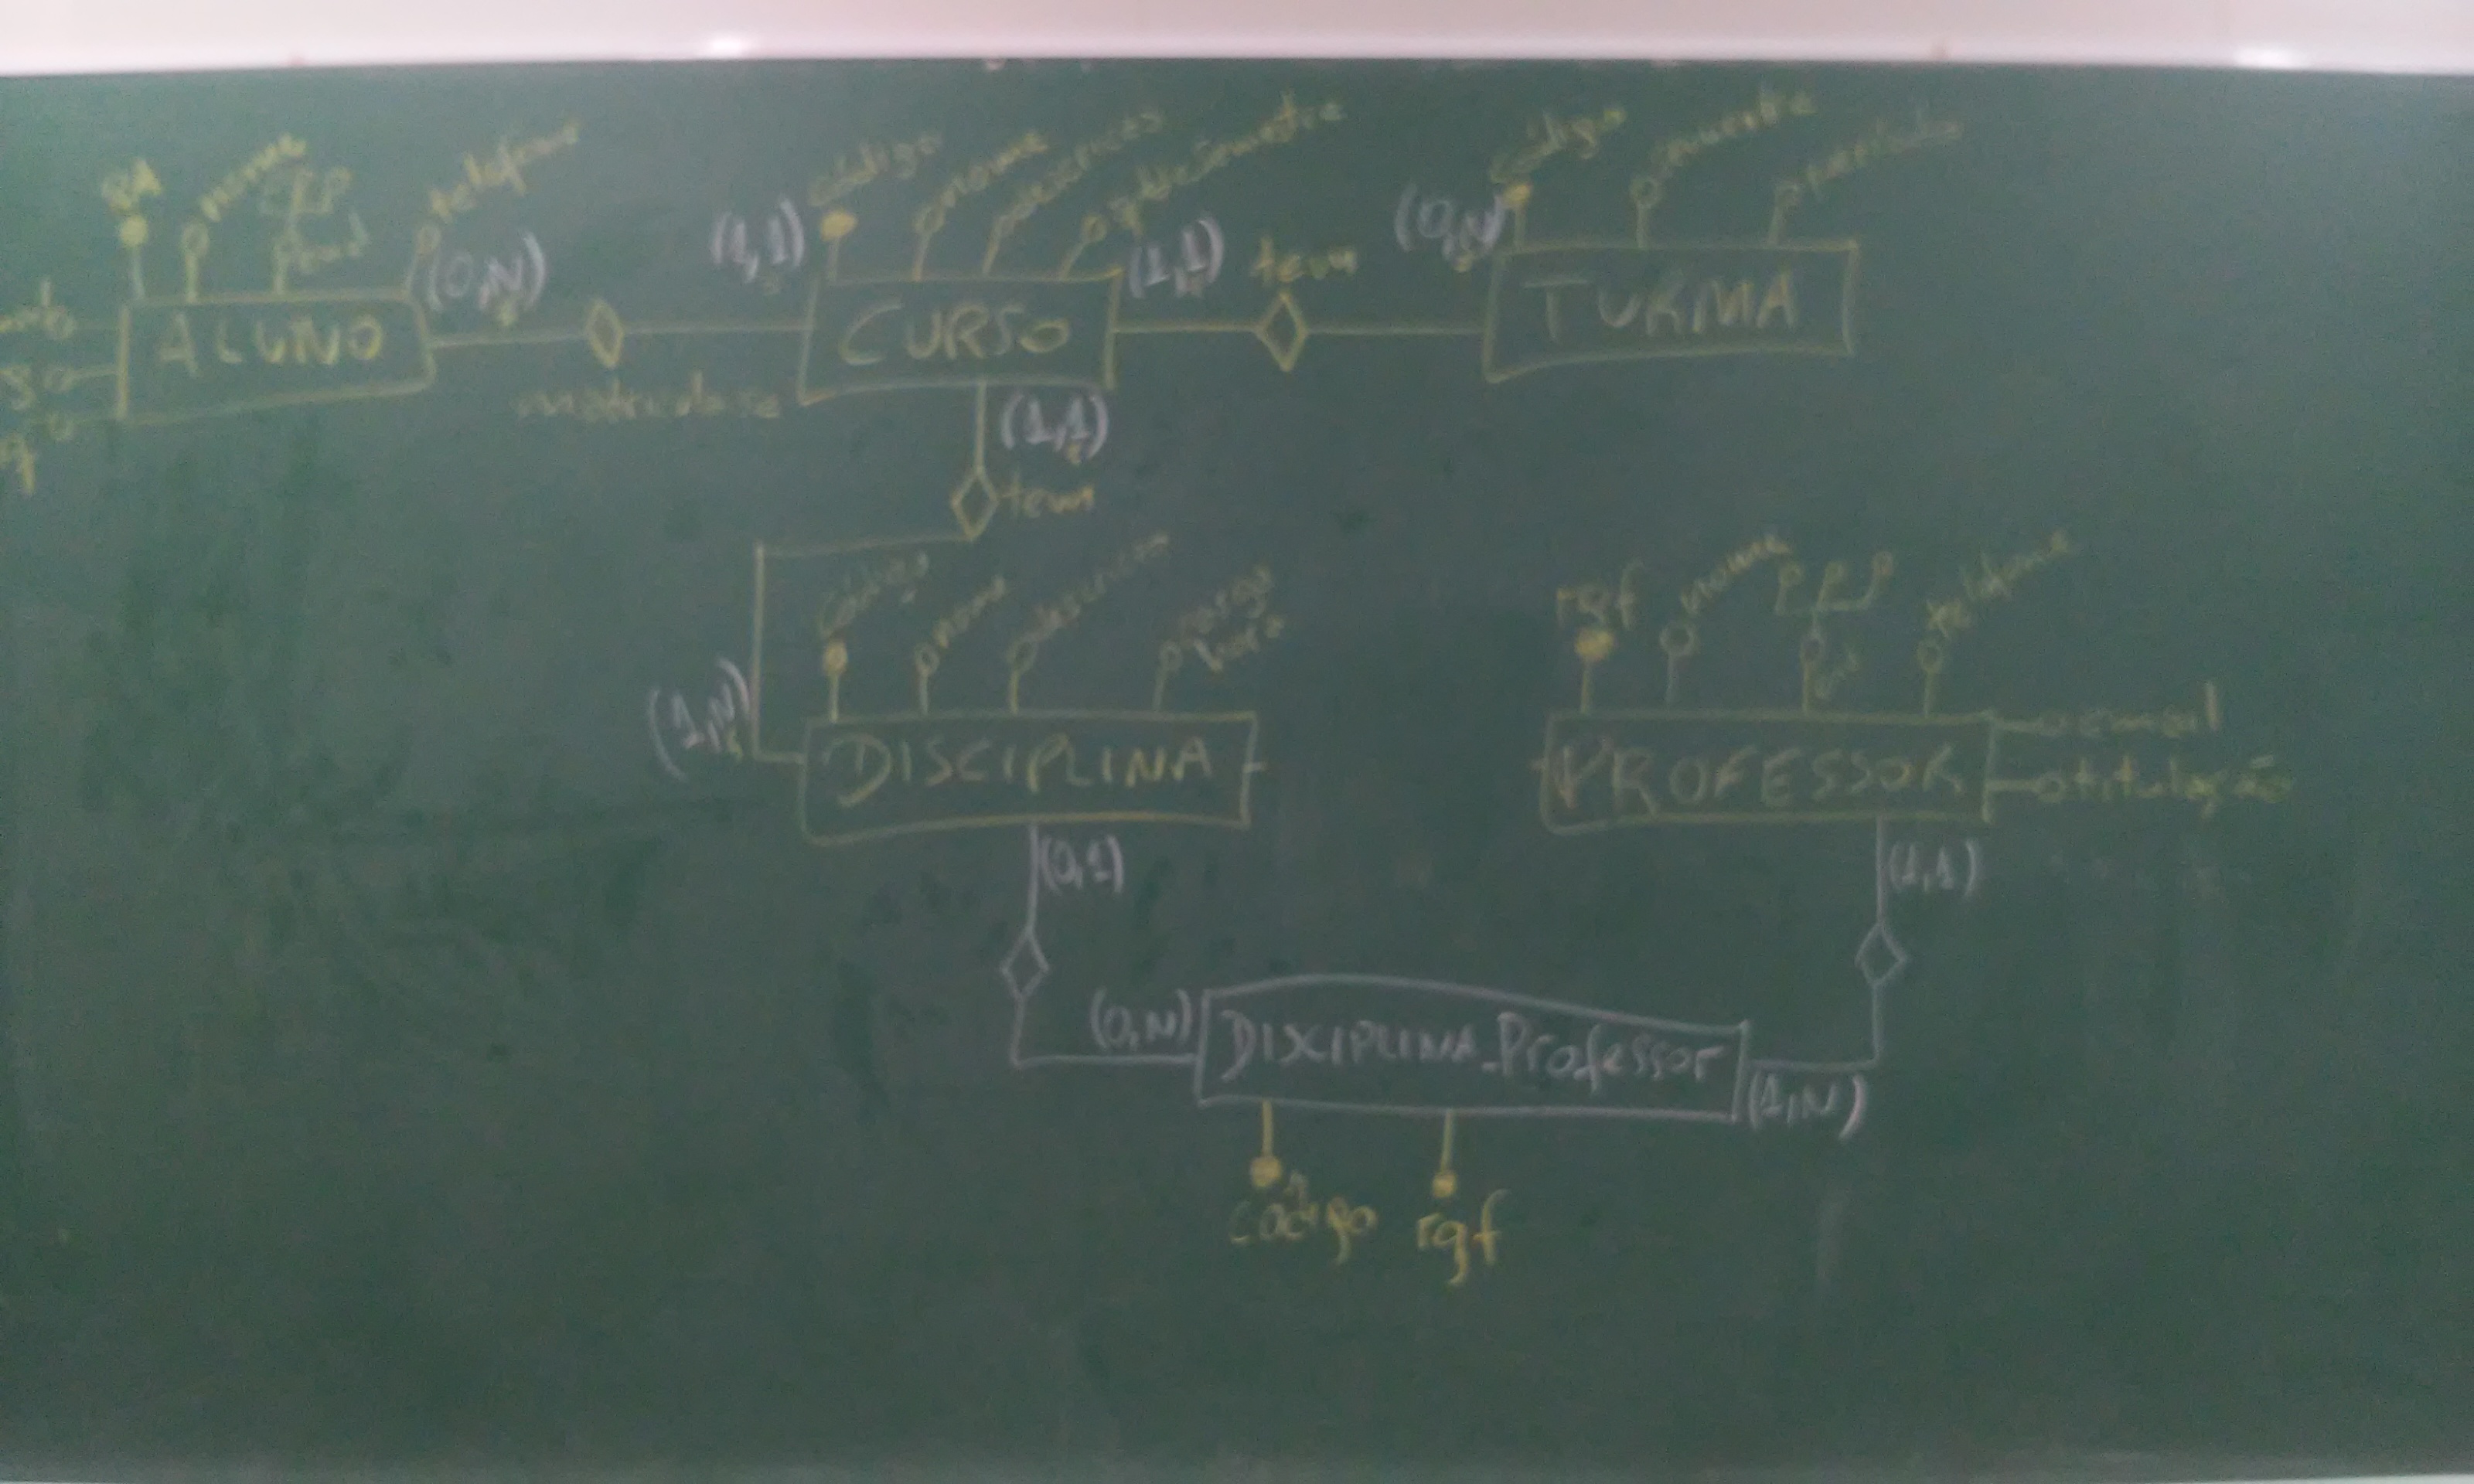 RA nome telefone
(0,N)
ALUNO
matricula-se
(1,1) código nome descrição (1,1)
CURSO
tem
(0,N) código semestre período
TURMA
(1,1)
tem
(1,N)
código nome descrição carga hora
DISCIPLINA
rgf nome telefone
PROFESSOR
email
titulação
(0,1)
(1,1)
(0,N)
DISCIPLINA_Professor
(1,N)
código rgf